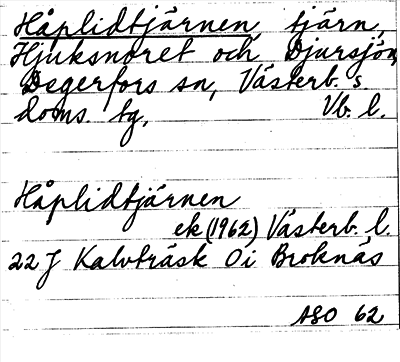 Håplidtjärnen, tjärn,
Hjuksnoret och Djursjön,
Degerfors sn, Västerb. s.
doms. tg, Vb. l.
Håplidtjärnen
ek (1962) Västerb. l.
22 J Kalvträsk Öi Broknäs
ASO 62